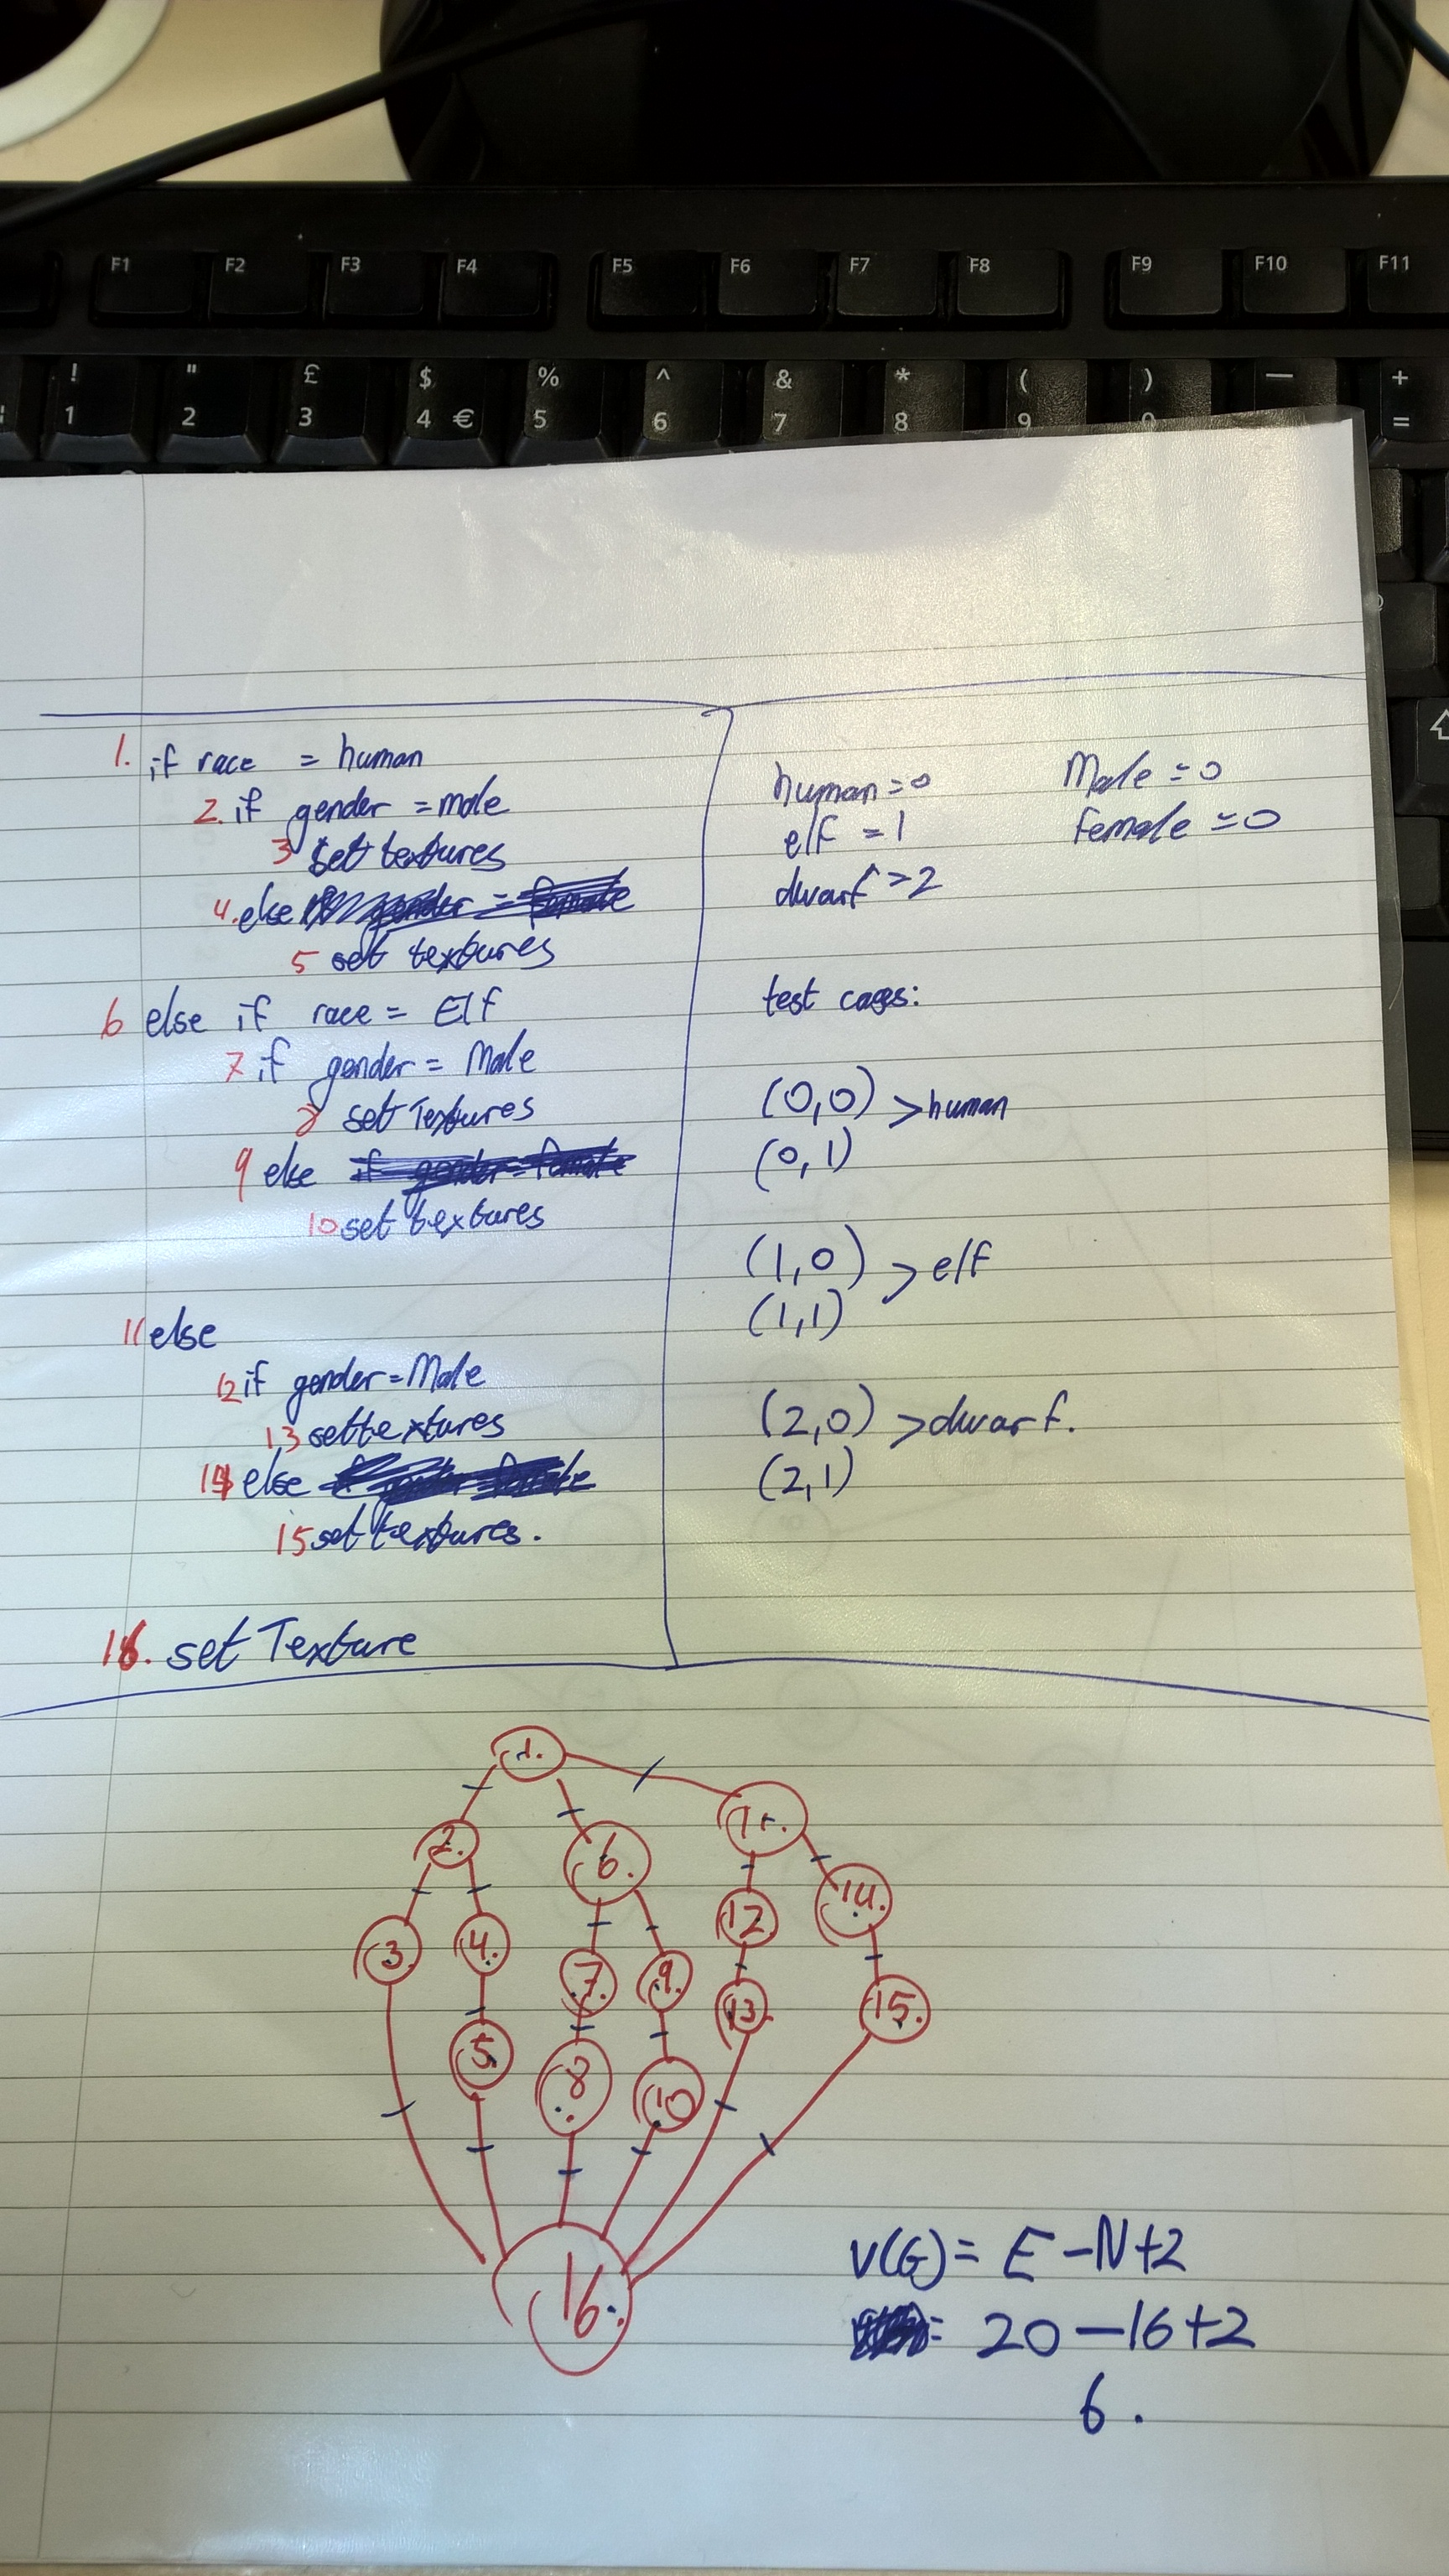 F1 F2 F3 F4 F5 F6 F7 F8 F9 F10 F11
! " £ $ % ^ & * ( ) — +
1 2 3 4 € 5 6 7 8 9 0 =
1. if race = human
2. if gender = male
3 set textures
4. else
5 set textures
6 else if race = Elf
7 if gender = Male
8 set Textures
9 else
10 set textures
11 else
12 if gender = Male
13 set textures
14 else
15 set textures.
16. set Texture
human = 0 Male = 0
elf = 1 female = 0
dwarf > 2
test cases:
(0,0) > human
(0,1)
(1,0) > elf
(1,1)
(2,0) > dwarf.
(2,1)
1.
2. 6. 11.
3. 4. 7. 9. 12 14.
5. 8 10 13 15.
16.
V(G) = E - N + 2
= 20 - 16 + 2
6.